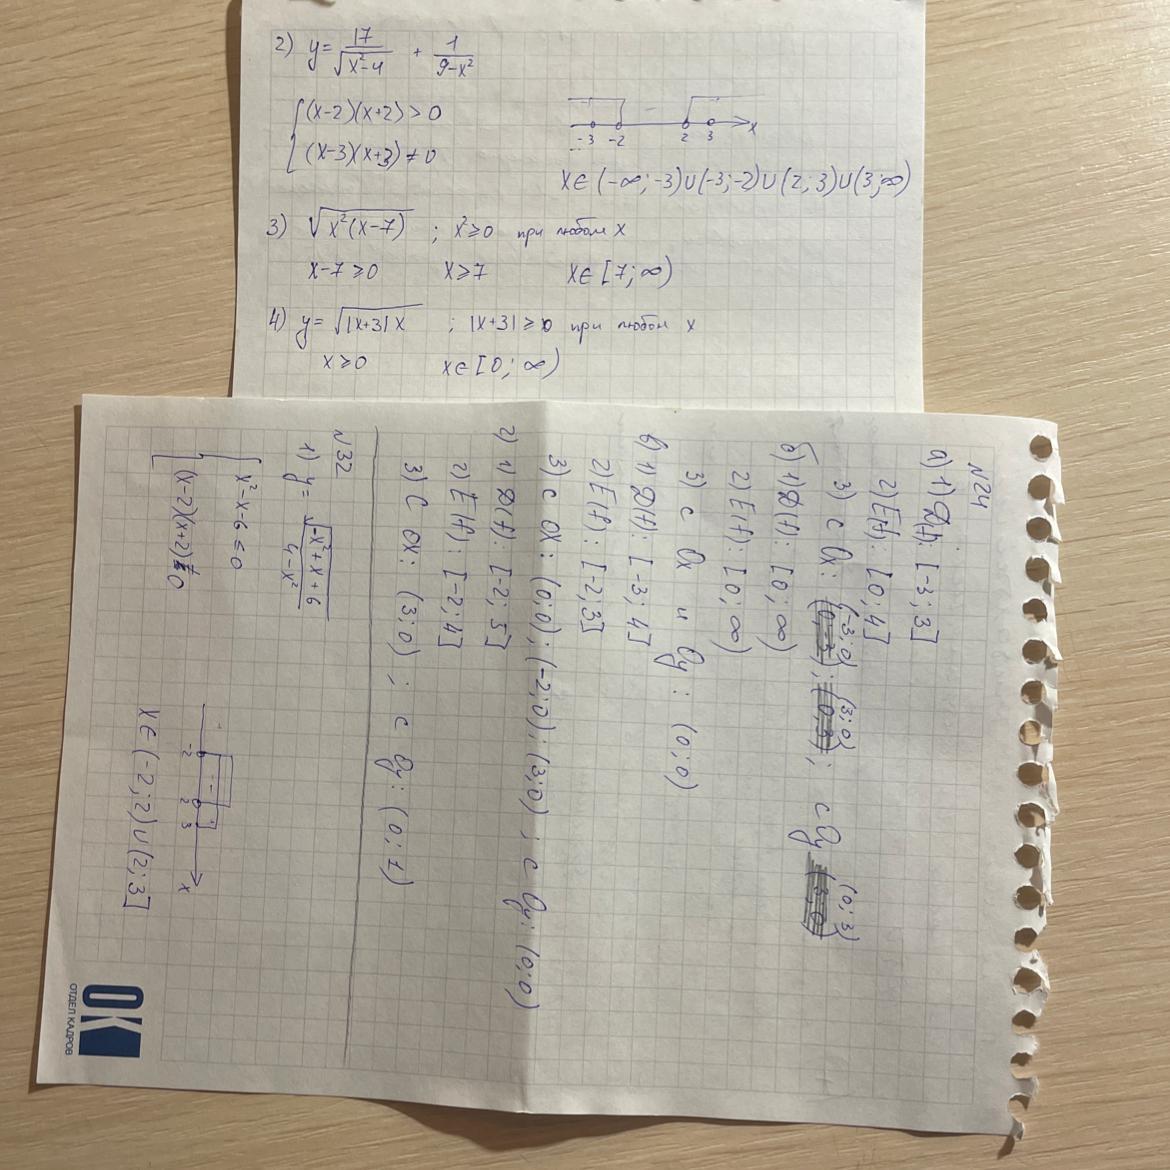 2) y = 17/√(x²-4) + 1/(9-x²)
{ (x-2)(x+2) > 0
(x-3)(x+3) ≠ 0
-3 -2 2 3 x
x ∈ (-∞; -3)∪(-3; -2)∪(2; 3)∪(3; ∞)
3) √(x²(x-7)) ; x² ≥ 0 при любом x
x-7 ≥ 0 x ≥ 7 x ∈ [7; ∞)
4) y = √(|x+3|x) ; |x+3| ≥ 0 при любом x
x ≥ 0 x ∈ [0; ∞)
N24
а) 1) D(f): [-3; 3]
2) E(f): [0; 4]
3) с Ox: (-3; 0) (3; 0); с Oy (0; 3)
б) 1) D(f): [0; ∞)
2) E(f): [0; ∞)
3) с Ox и Oy: (0; 0)
в) 1) D(f): [-3; 4]
2) E(f): [-2; 3]
3) с OX: (0; 0); (-2; 0); (3; 0); с Oy: (0; 0)
г) 1) D(f): [-2; 5]
2) E(f): [-2; 4]
3) С OX: (3; 0) ; с Oy: (0; 1)
N32
1) y = √(-x²+x+6)/(4-x²)
{ x²-x-6 ≤ 0
(x-2)(x+2) ≠ 0
-2 2 3 x
x ∈ (-2; 2)∪(2; 3]
OK
ОТДЕЛ КАДРОВ